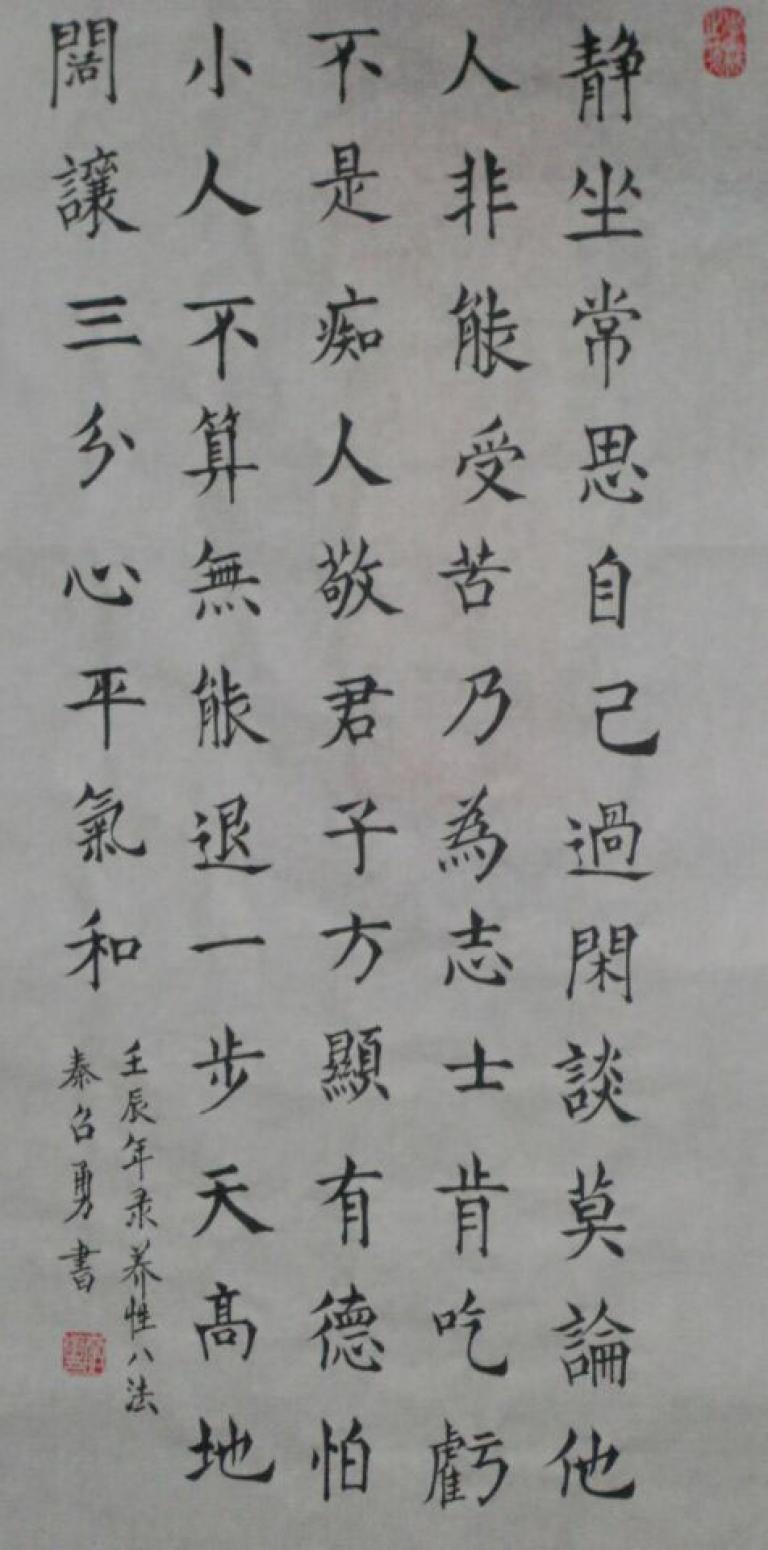 静坐常思自己過閑談莫論他
人非能受苦乃為志士肯吃虧
不是痴人敬君子方顯有德怕
小人不算無能退一步天高地
闊讓三分心平氣和
壬辰年录养性八法
秦召勇書